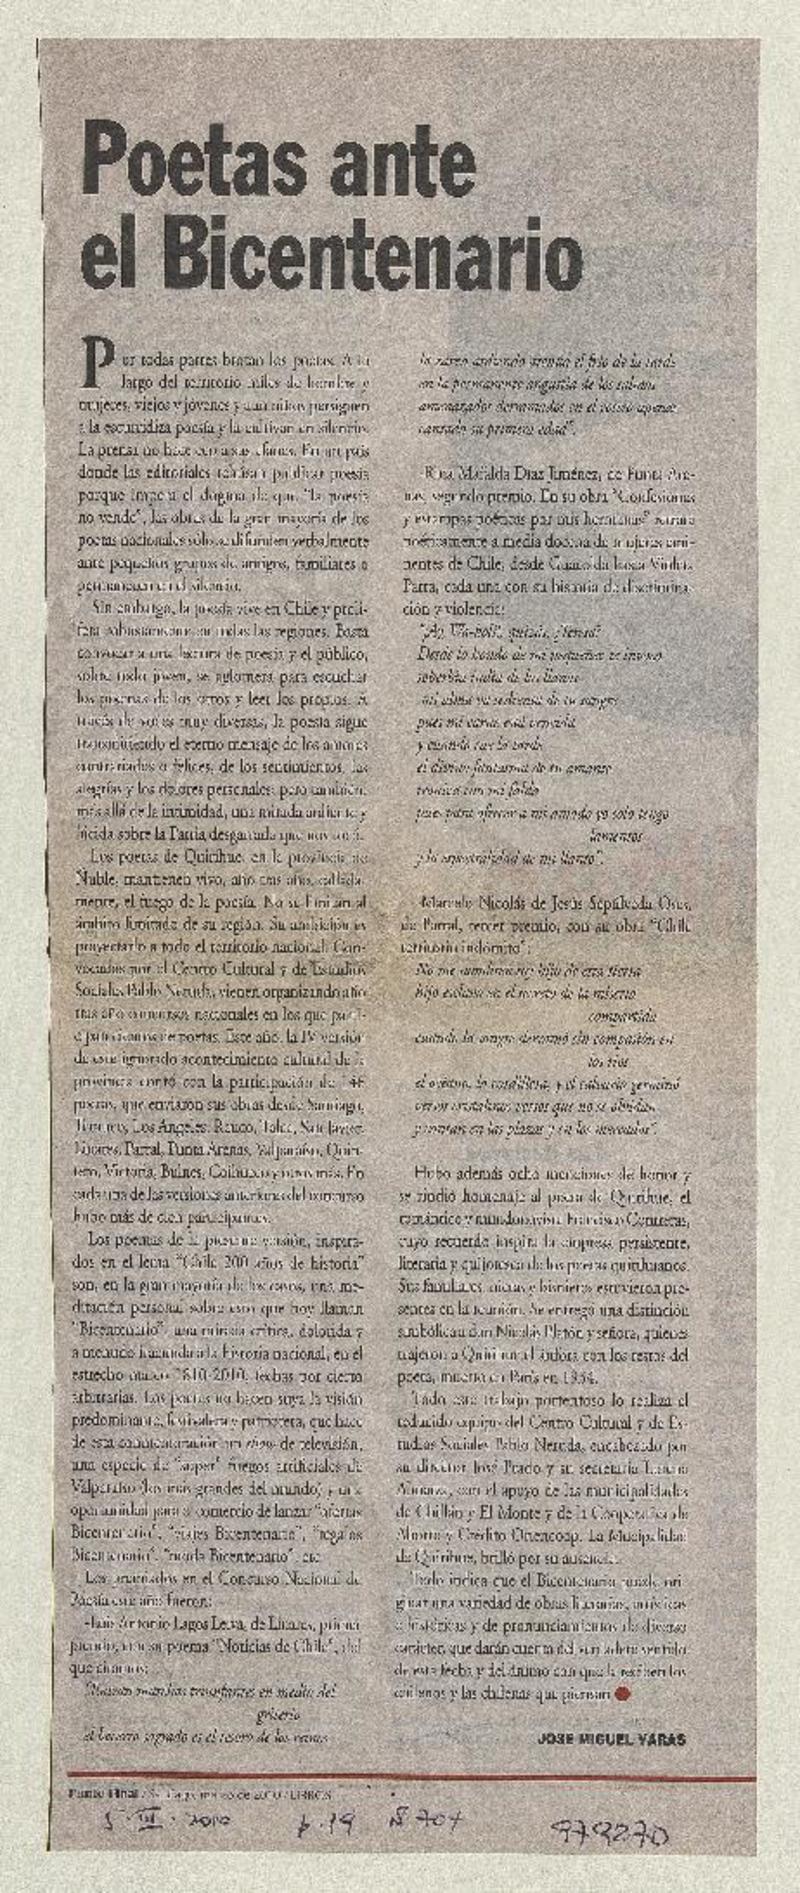 Poetas ante
el Bicentenario
Por todas partes brotan los poetas. A lo
largo del territorio miles de hombres y
mujeres, viejos y jóvenes y aun niños persiguen
a la escurridiza poesía y la cultivan en silencio.
La prensa no hace caso a sus afanes. En un país
donde las editoriales rehúsan publicar poesía
porque impera el dogma de que "la poesía
no vende", las obras de la gran mayoría de los
poetas nacionales sólo se difunden verbalmente
ante pequeños grupos de amigos, familiares o
permanecen en el silencio.
Sin embargo, la poesía vive en Chile y proli-
fera robustamente en todas las regiones. Basta
convocar a una lectura de poesía y el público,
sobre todo joven, se aglomera para escuchar
los poemas de los otros y leer los propios. A
través de voces muy diversas, la poesía sigue
transmitiendo el eterno mensaje de los amores
contrariados o felices, de los sentimientos, las
alegrías y los dolores personales; pero también,
más allá de la intimidad, una mirada ardiente y
lúcida sobre la Patria desgarrada que nos
Los poetas de Quirihue, en la provincia de
Ñuble, mantienen vivo, año tras año, callada-
mente, el fuego de la poesía. No se limitan al
ámbito limitado de su región. Su ambición es
proyectarlo a todo el territorio nacional. Con-
vocados por el Centro Cultural y de Estudios
Sociales Pablo Neruda, vienen organizando año
tras año concursos nacionales en los que parti-
cipan cientos de poetas. Este año, la IV versión
de este ignorado acontecimiento cultural de la
provincia contó con la participación de 146
poetas, que enviaron sus obras desde Santiago,
Temuco, Los Angeles, Renco, Talca, San Javier,
Linares, Parral, Punta Arenas, Valparaíso, Quin-
tero, Victoria, Bulnes, Coihueco y otros más. En
cada una de las versiones anteriores del concurso
hubo más de cien participantes.
Los poemas de la presente versión, inspira-
dos en el lema "Chile 200 años de historia"
son, en la gran mayoría de los casos, una me-
ditación personal sobre esto que hoy llaman
"Bicentenario", una mirada crítica, dolorida y
a menudo iracunda a la historia nacional, en el
estrecho marco 1810-2010, fechas por cierto
arbitrarias. Los poetas no hacen suya la visión
predominante, festivalera y patriotera, que hace
de esta conmemoración un show de televisión,
una especie de "super" fuegos artificiales de
Valparaíso (los más grandes del mundo) y una
oportunidad para el comercio de lanzar "ofertas
Bicentenario", "viajes Bicentenario", "regalos
Bicentenario", "moda Bicentenario", etc.
Los premiados en el Concurso Nacional de
Poesía este año fueron:
-Luis Antonio Lagos Leiva, de Linares, primer
premio, con su poema "Noticias de Chile", del
que citamos:
triunfantes en medio del
griterío
el becerro sagrado es el tesoro de los
la zarza ardiendo frente al frío de la tarde
en la permanente angustia de los
amenazados derramados en el rocío apenas
cantado su primera edad".
-Rosa Mafalda Díaz Jiménez, de Punta Are-
nas, segundo premio. En su obra "Confesiones
y estampas poéticas por mis hermanas" retrata
poéticamente a media docena de mujeres emi-
nentes de Chile, desde Guacolda hasta Violeta
Parra, cada una con su historia de discrimina-
ción y violencia:
Desde lo hondo de mi pequeñez te invoco
soberbia india de los llanos
mi alma va sedienta de tu sangre
pues mi carne está vencida
y cuando cae la tarde
el dismo fantasma de tu amante
tropieza con mi falda
pues para ofrecer a mi amado yo solo tengo
lamentos
y la espectralidad de mi llanto".
-Marcelo Nicolás de Jesús Sepúlveda Oses,
de Parral, tercer premio, con su obra "Chile
territorio indómito":
No me nombraron hijo de esta tierra
hijo esclavo en el secreto de la miseria
compartida
cuando la sangre derramó sin compasión en
los ríos
el océano, la cordillera, y el salitre germinó
versos cristalinos versos que no se olvidan
y cantan en las plazas y en los mercados".
Hubo además ocho menciones de honor y
se rindió homenaje al poeta de Quirihue, el
romántico y mundonovista Francisco Contreras,
cuyo recuerdo inspira la empresa persistente,
literaria y quijotesca de los poetas quirihuanos.
Sus familiares, nietas y bisnietos estuvieron pre-
sentes en la reunión. Se entregó una distinción
simbólica a don Nicolás Platón y señora, quienes
trajeron a Quirihue el ánfora con los restos del
poeta, muerto en París en 1934.
Todo este trabajo portentoso lo realiza el
reducido equipo del Centro Cultural y de Es-
tudios Sociales Pablo Neruda, encabezado por
su director José Prado y su secretaria
con el apoyo de las municipalidades
de Chillán y El Monte y de la Cooperativa de
Ahorro y Crédito Oriencoop. La Municipalidad
de Quirihue, brilló por su ausencia.
Todo indica que el Bicentenario puede ori-
ginar una variedad de obras literarias, artísticas
e históricas y de pronunciamientos de diverso
carácter, que darán cuenta del verdadero sentido
de esta fecha y del ánimo con que la reciben los
chilenos y las chilenas que piensan
JOSE MIGUEL VARAS
Punto Final / Santiago, marzo de 2010 / LIBROS
5-III-2010 p.19 N 704 979270